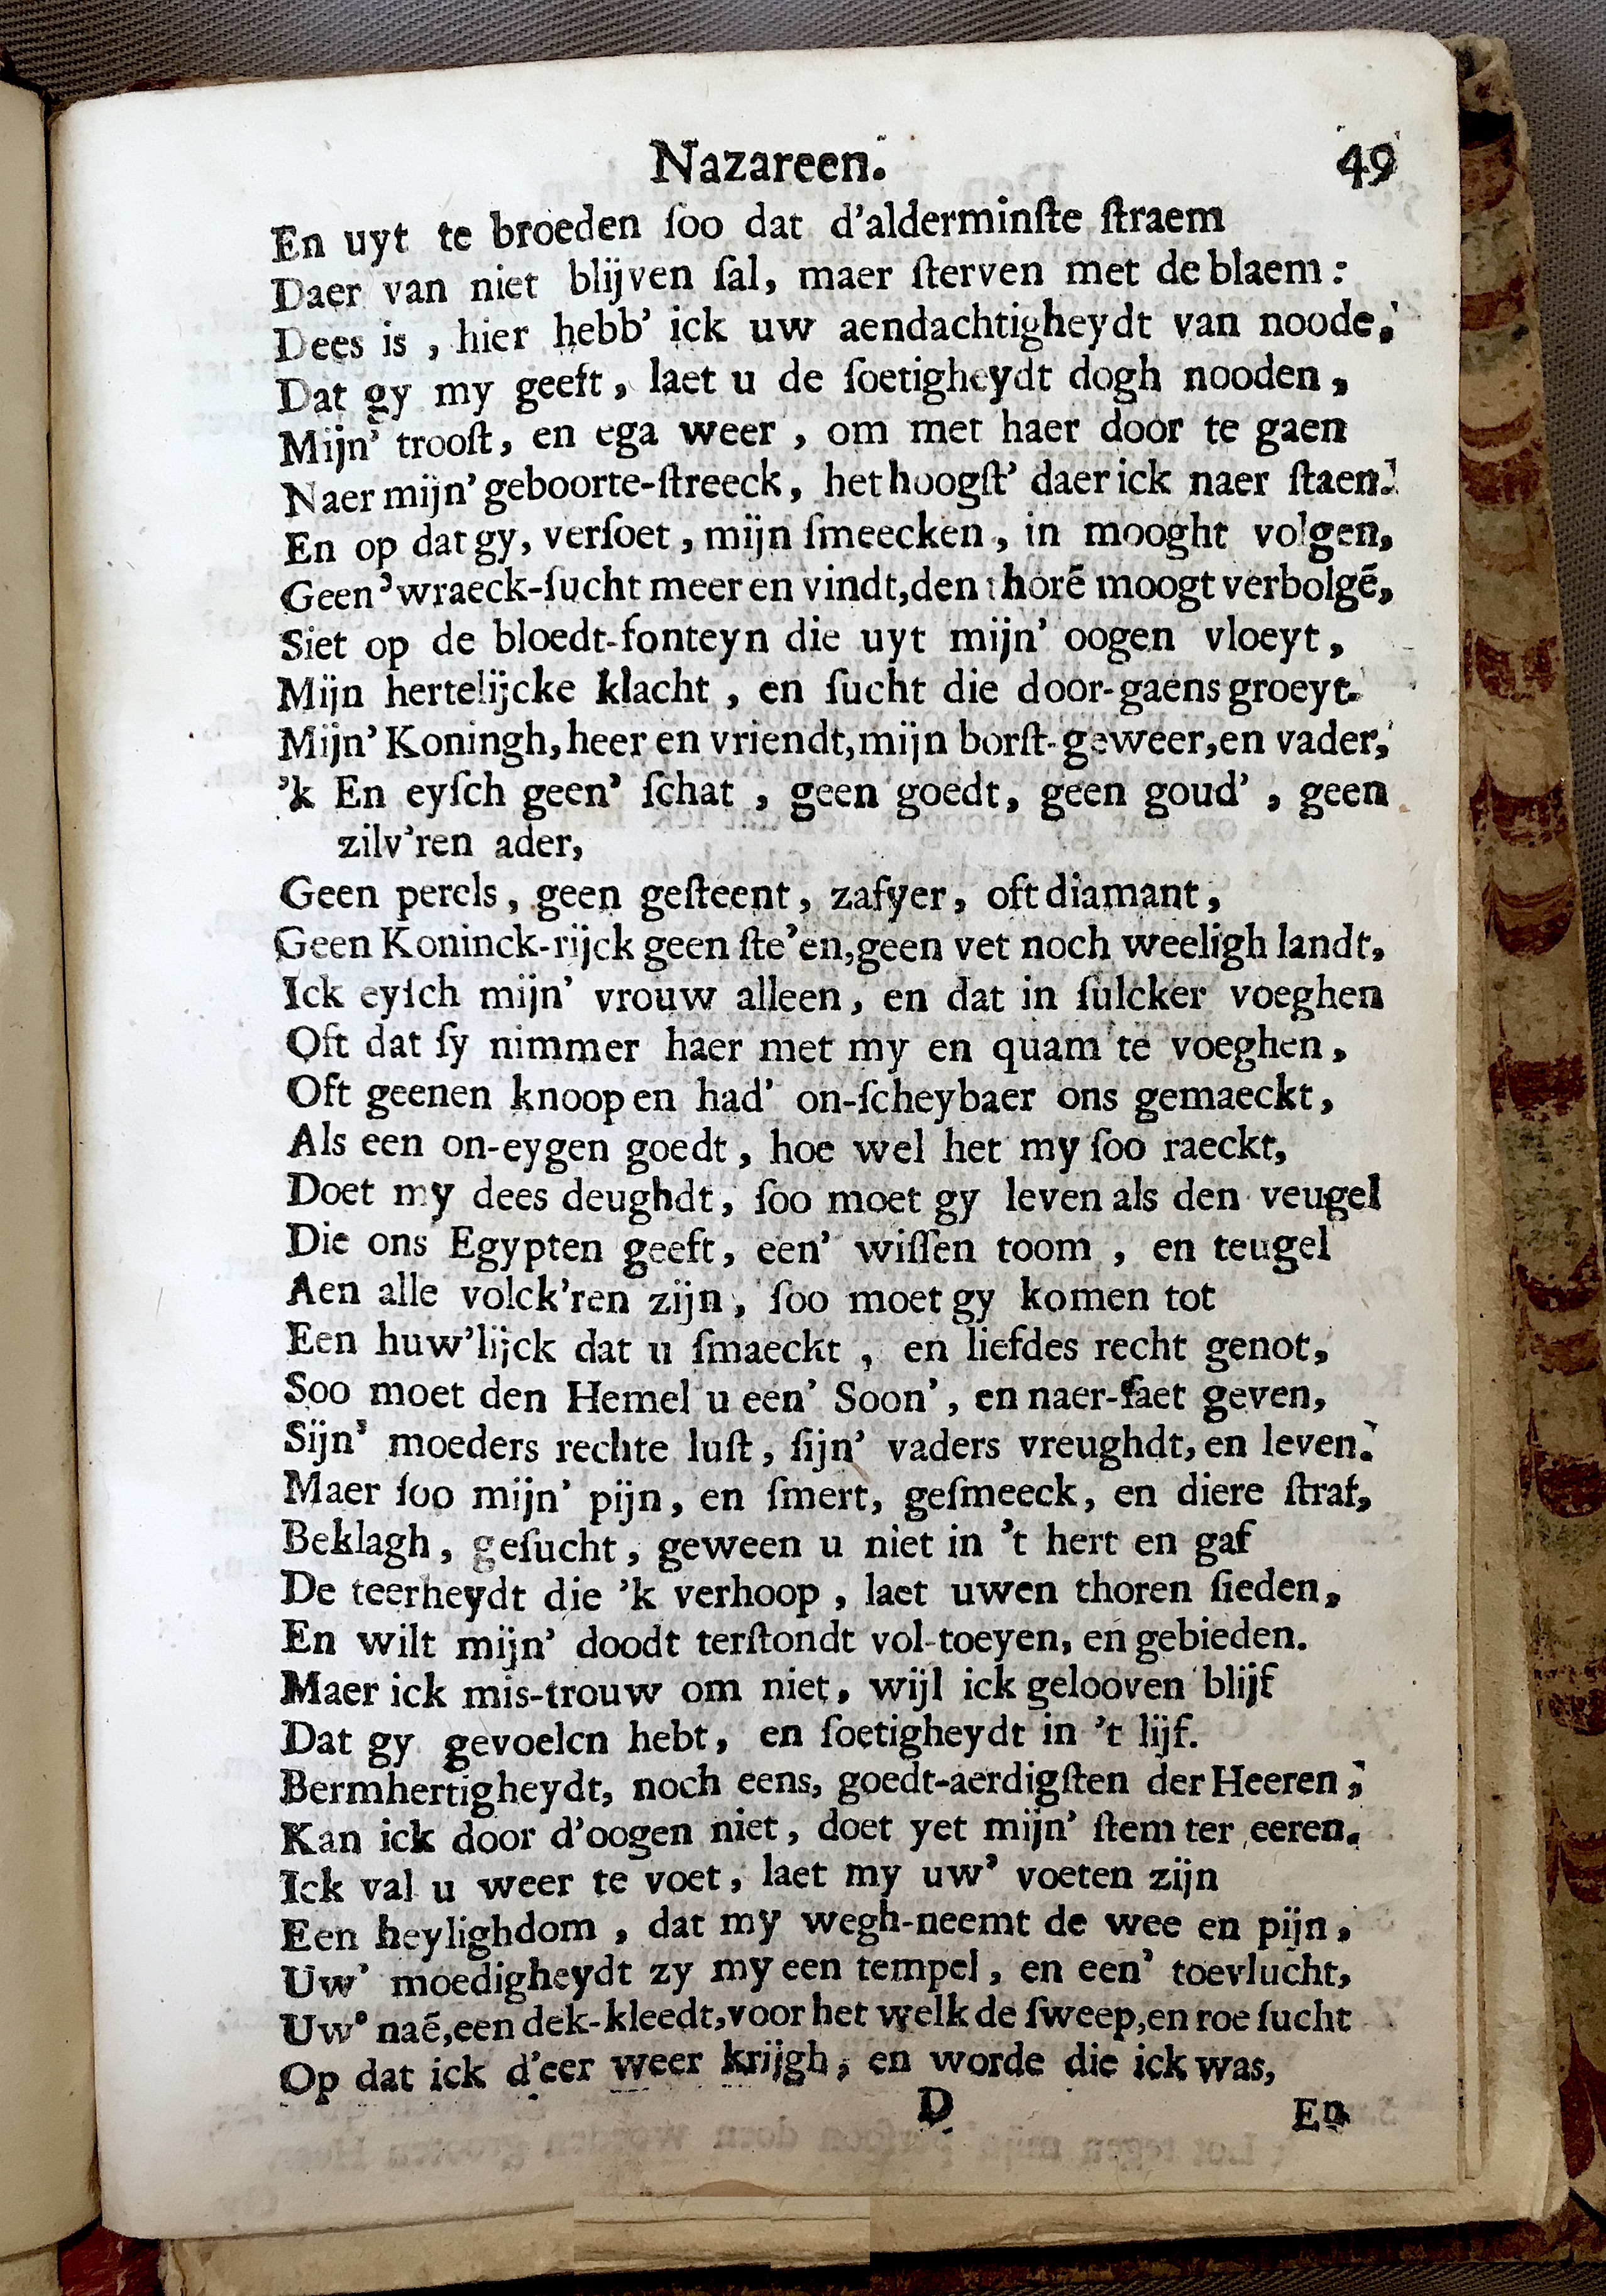 Nazareen. 49
En uyt te broeden ſoo dat d'alderminſte ſtraem
Daer van niet blijven ſal, maer ſterven met de blaem:
Dees is, hier hebb' ick uw aendachtigheydt van noode,
Dat gy my geeft, laet u de ſoetigheydt dogh nooden,
Mijn' trooſt, en ega weer, om met haer door te gaen
Naer mijn' geboorte-ſtreeck, het hoogſt' daer ick naer ſtaen.
En op dat gy, verſoet, mijn ſmeecken, in mooght volgen,
Geen' wraeck-ſucht meer en vindt, den thorē moogt verbolgē,
Siet op de bloedt-fonteyn die uyt mijn' oogen vloeyt,
Mijn hertelijcke klacht, en ſucht die door-gaens groeyt.
Mijn' Koningh, heer en vriendt, mijn borſt-geweer, en vader,
'k En eyſch geen' ſchat, geen goedt, geen goud', geen
zilv'ren ader,
Geen perels, geen geſteent, zafyer, oft diamant,
Geen Koninck-rijck geen ſte'en, geen vet noch weeligh landt,
Ick eyſch mijn' vrouw alleen, en dat in ſulcker voeghen
Oft dat ſy nimmer haer met my en quam te voeghen,
Oft geenen knoop en had' on-ſcheybaer ons gemaeckt,
Als een on-eygen goedt, hoe wel het my ſoo raeckt,
Doet my dees deughdt, ſoo moet gy leven als den veugel
Die ons Egypten geeft, een' wiſſen toom, en teugel
Aen alle volck'ren zijn, ſoo moet gy komen tot
Een huw'lijck dat u ſmaeckt, en liefdes recht genot,
Soo moet den Hemel u een' Soon', en naer-ſaet geven,
Sijn' moeders rechte luſt, ſijn' vaders vreughdt, en leven.
Maer ſoo mijn' pijn, en ſmert, geſmeeck, en diere ſtraf,
Beklagh, geſucht, geween u niet in 't hert en gaf
De teerheydt die 'k verhoop, laet uwen thoren ſieden,
En wilt mijn' doodt terſtondt vol-toeyen, en gebieden.
Maer ick mis-trouw om niet, wijl ick gelooven blijf
Dat gy gevoelen hebt, en ſoetigheydt in 't lijf.
Bermhertigheydt, noch eens, goedt-aerdigſten der Heeren,
Kan ick door d'oogen niet, doet yet mijn' ſtem ter eeren.
Ick val u weer te voet, laet my uw' voeten zijn
Een heylighdom, dat my wegh-neemt de wee en pijn,
Uw' moedigheydt zy my een tempel, en een' toevlucht,
Uw' naē, een dek-kleedt, voor het welk de ſweep, en roe ſucht
Op dat ick d'eer weer krijgh, en worde die ick was,
D En